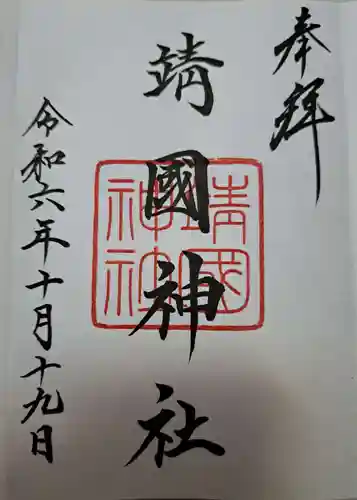 奉拜
靖國神社
靖國神社
令和六年十月十九日